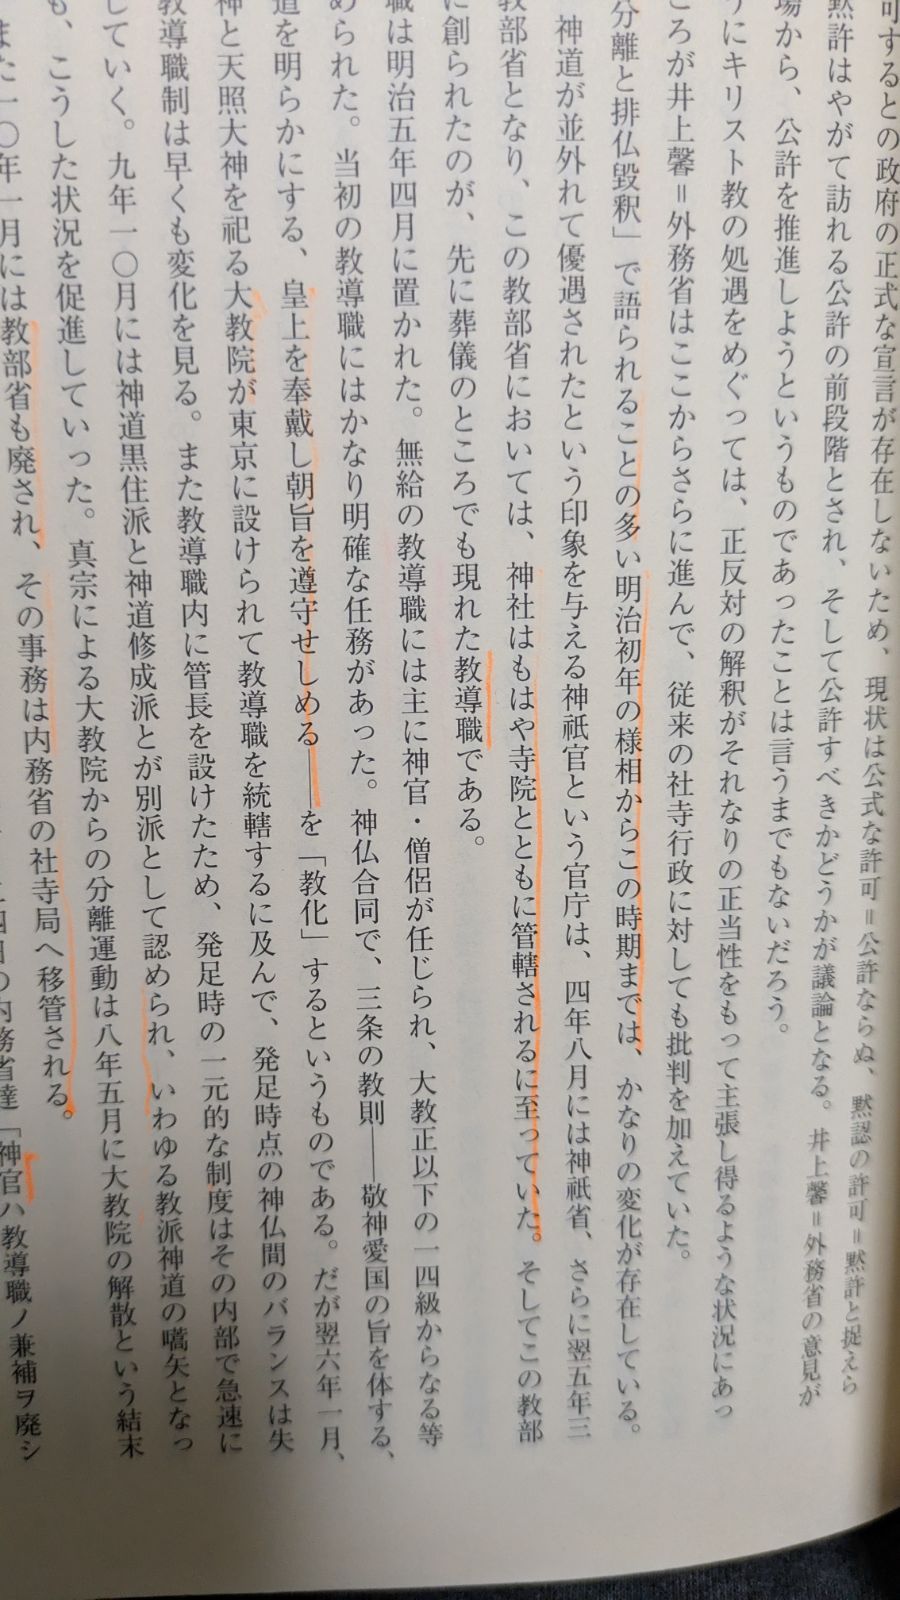 可するとの政府の正式な宣言が存在しないため、現状は公式な許可＝公許ならぬ、黙認の許可＝黙許と捉えら
黙許はやがて訪れる公許の前段階とされ、そして公許すべきかどうかが議論となる。井上馨＝外務省の意見が
場から、公許を推進しようというものであったことは言うまでもないだろう。
うにキリスト教の処遇をめぐっては、正反対の解釈がそれなりの正当性をもって主張し得るような状況にあっ
ころが井上馨＝外務省はここからさらに進んで、従来の社寺行政に対しても批判を加えていた。
分離と排仏毀釈」で語られることの多い明治初年の様相からこの時期まででは、かなりの変化が存在している。
神道が並外れて優遇されたという印象を与える神祇官という官庁は、四年八月には神祇省、さらに翌五年三
教部省となり、この教部省においては、神社はもはや寺院とともに管轄されるに至っていた。そしてこの教部
に創られたのが、先に葬儀のところでも現れた教導職である。
職は明治五年四月に置かれた。無給の教導職には主に神官・僧侶が任じられ、大教正以下の一四級からなる等
められた。当初の教導職にはかなり明確な任務があった。神仏合同で、三条の教則――敬神愛国の旨を体する、
道を明らかにする、皇上を奉戴し朝旨を遵守せしめる――を「教化」するというものである。だが翌六年一月、
神と天照大神を祀る大教院が東京に設けられて教導職を統轄するに及んで、発足時点の神仏間のバランスは失
教導職制は早くも変化を見る。また教導職内に管長を設けたため、発足時の一元的な制度はその内部で急速に
していく。九年一〇月には神道黒住派と神道修成派とが別派として認められ、いわゆる教派神道の嚆矢となっ
も、こうした状況を促進していった。真宗による大教院からの分離運動は八年五月に大教院の解散という結末
また一〇年一月には教部省も廃され、その事務は内務省の社寺局へ移管される。
四日の内務省達「神官ハ教導職ノ兼補ヲ廃シ